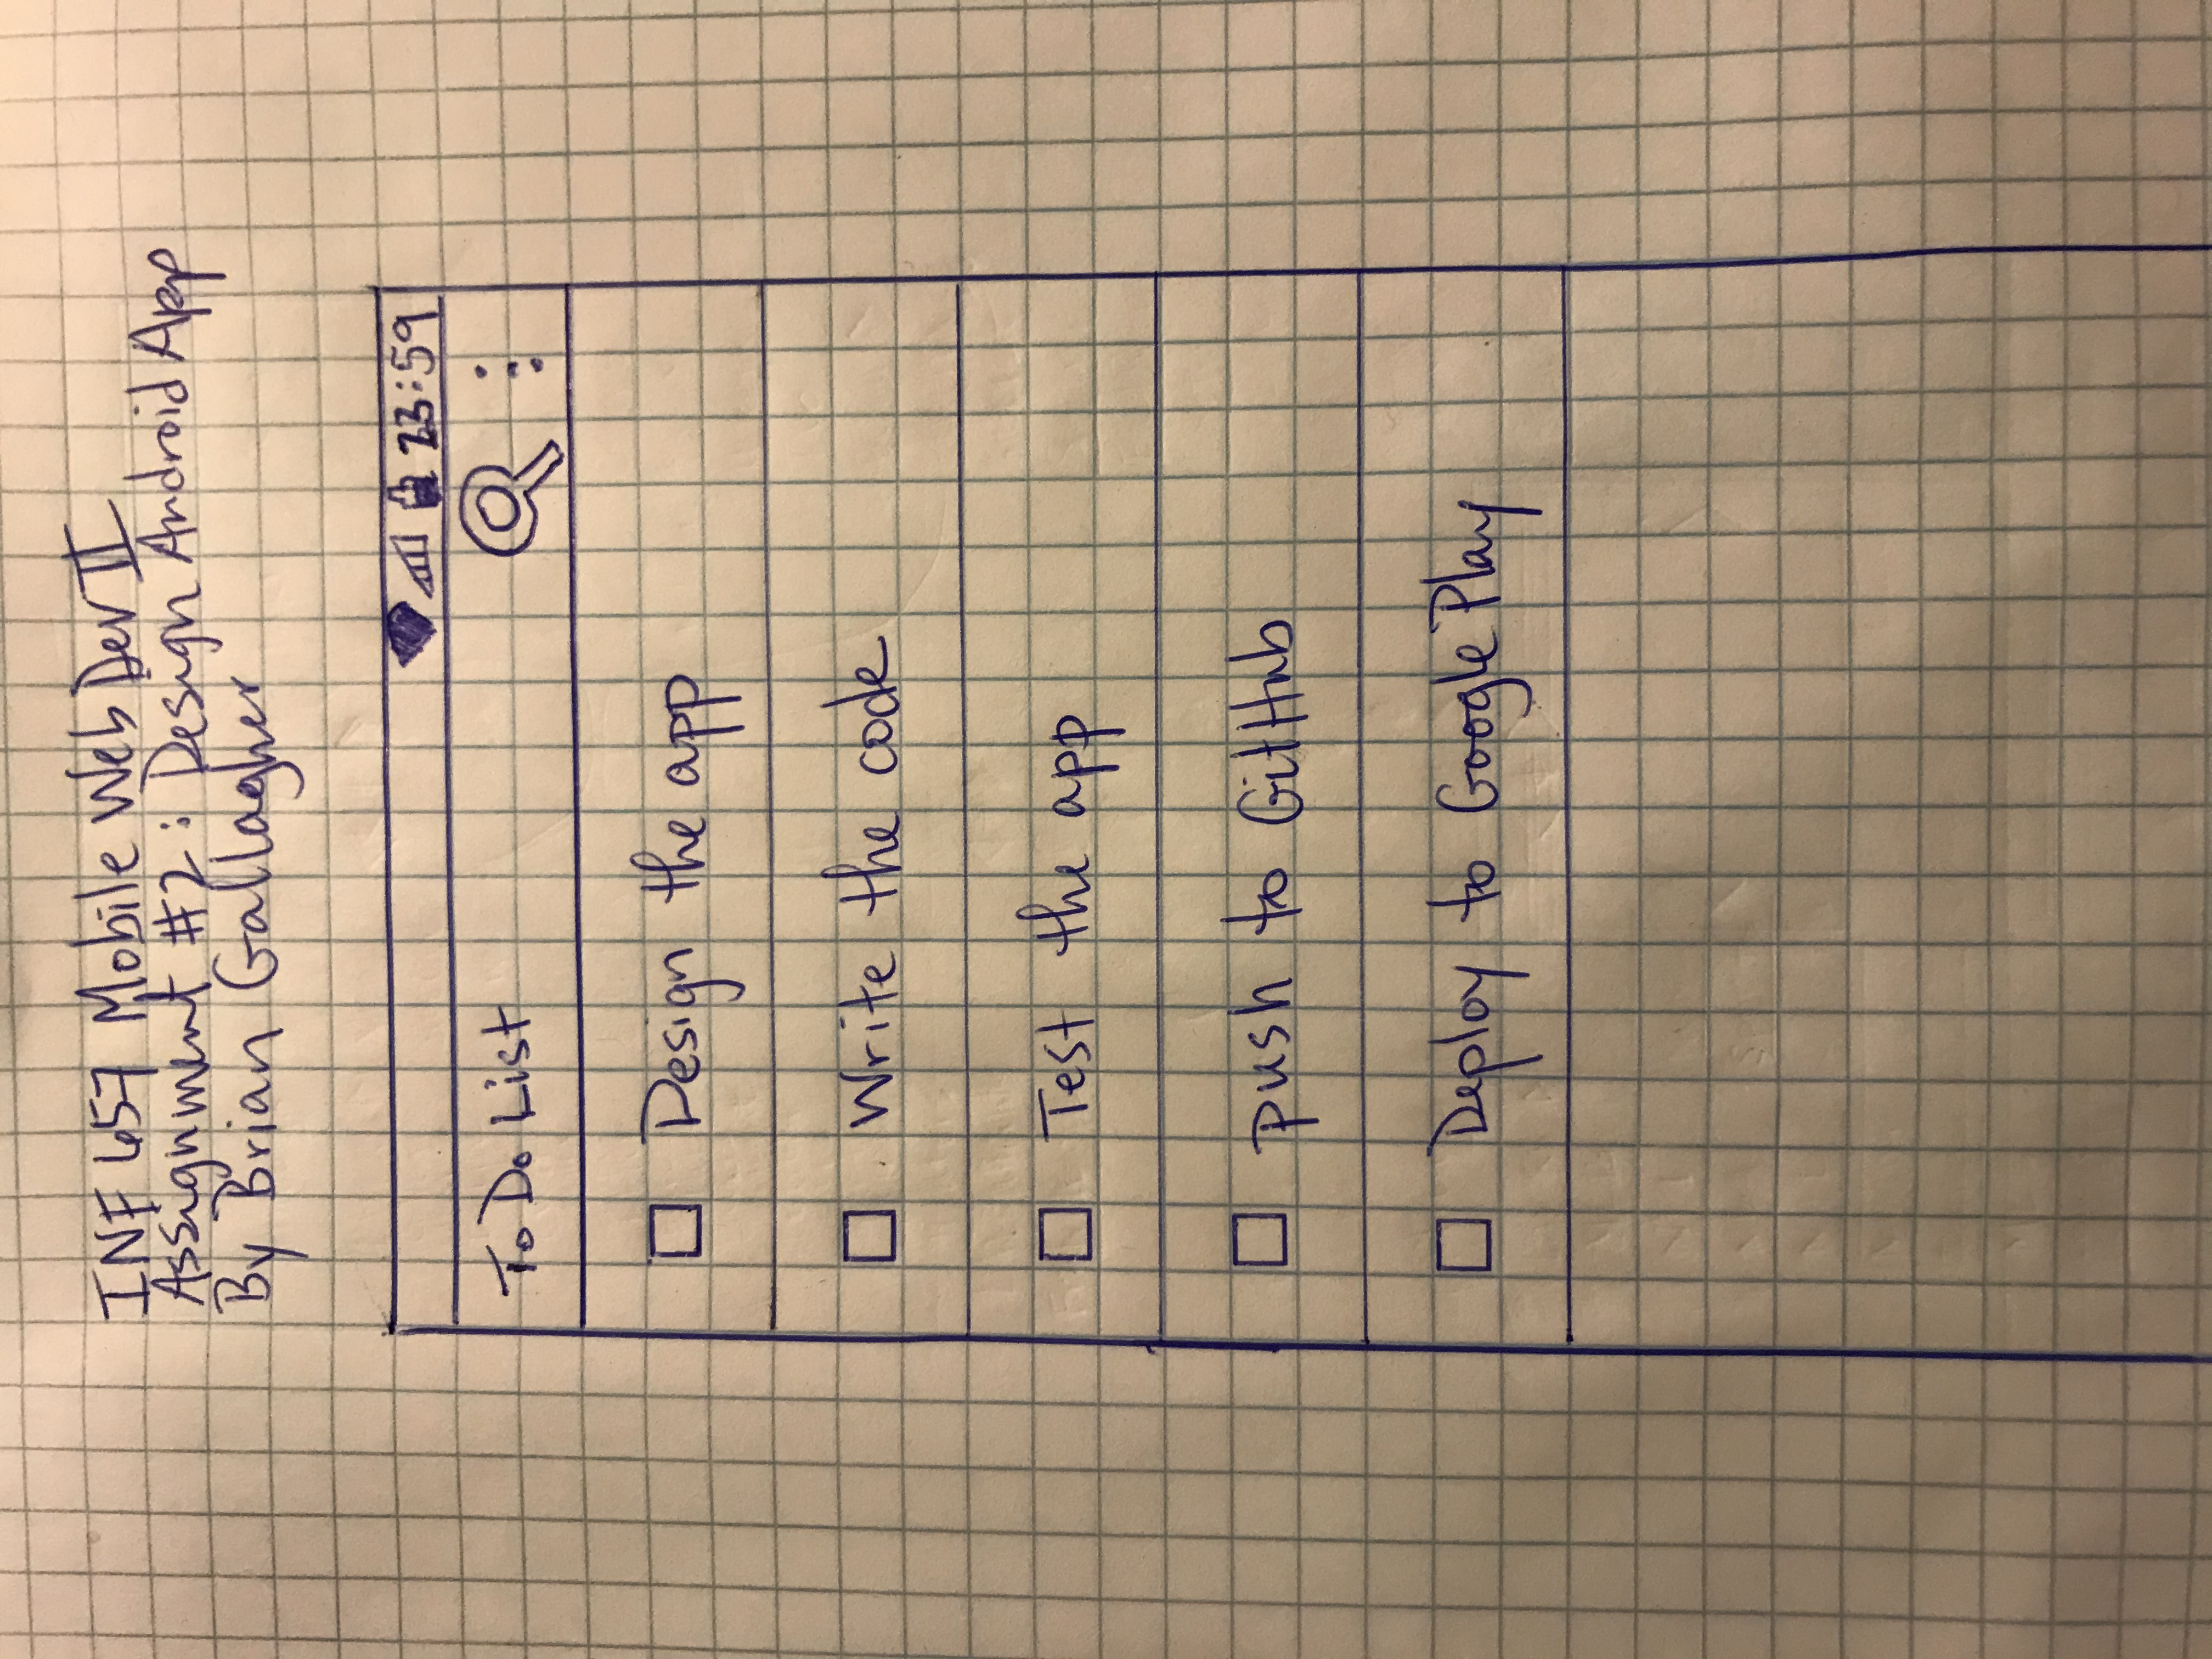 INF 657 Mobile Web Dev II
Assignment #2: Design Android App
By Brian Gallagher
23:59
To Do List
Design the app
Write the code
Test the app
push to GitHub
Deploy to Google Play